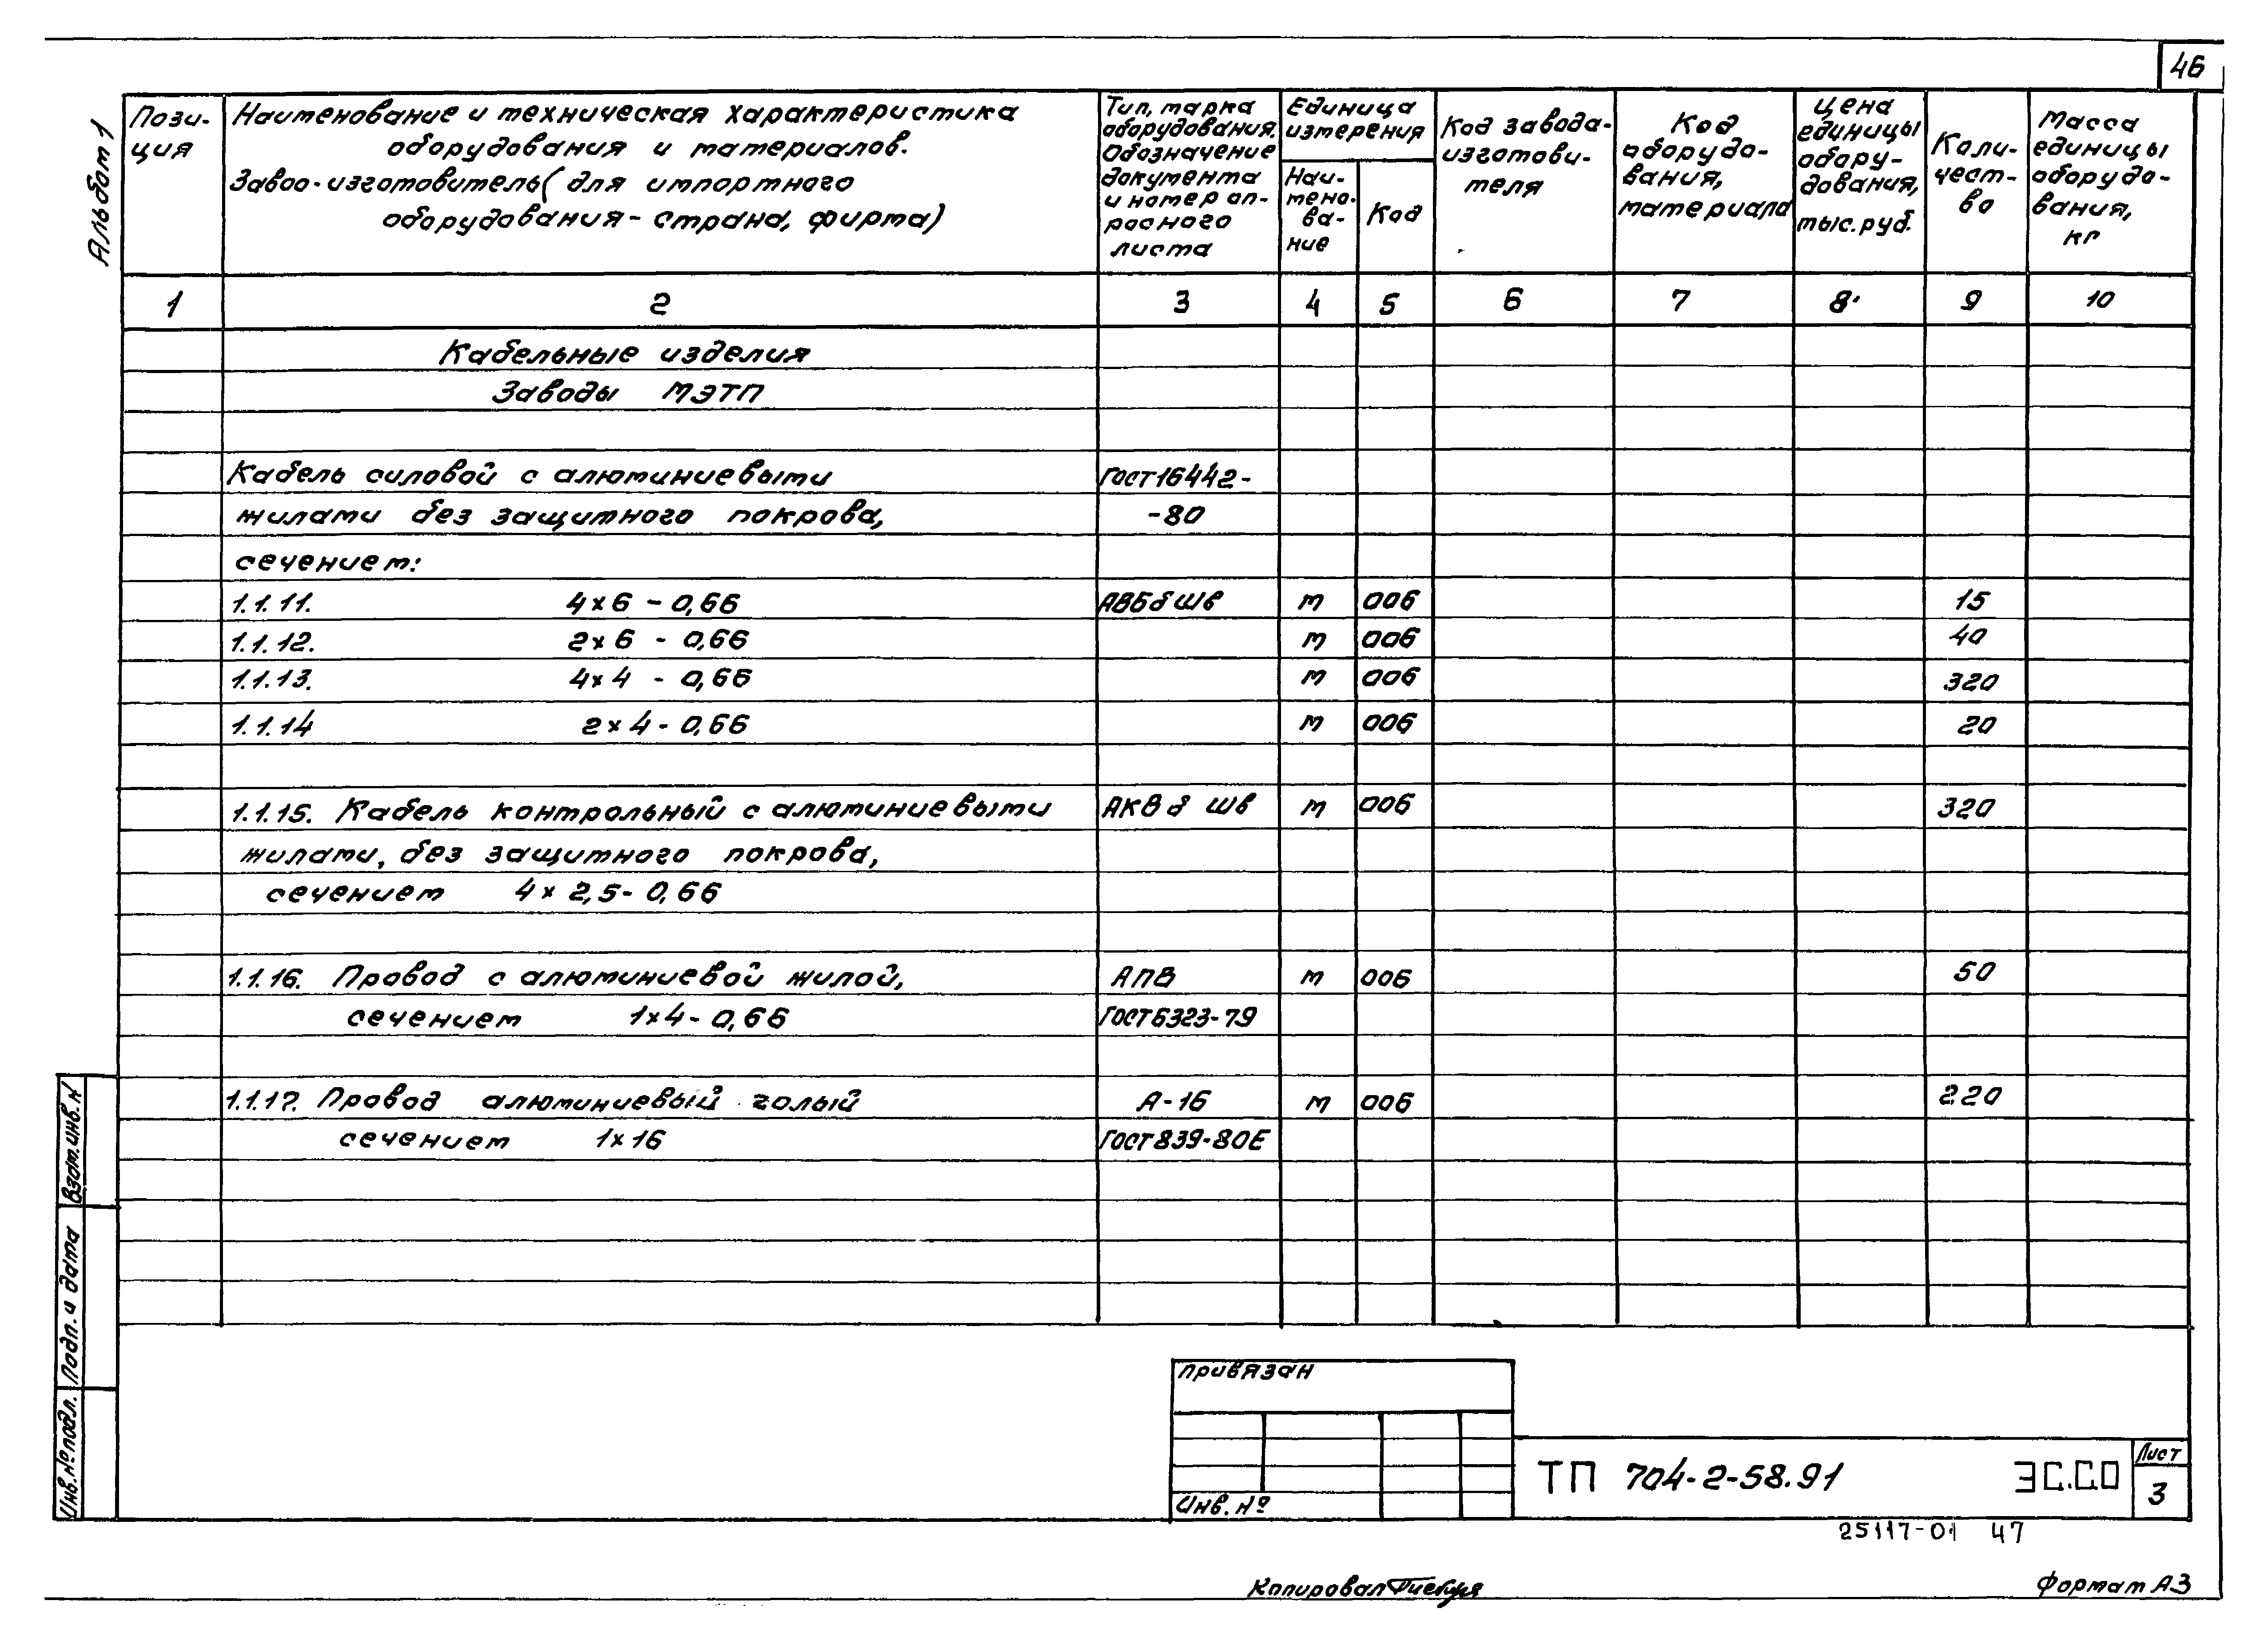 46
Альбом 1
Пози-
ция
Наименование и техническая характеристика
оборудования и материалов.
Завод-изготовитель (для импортного
оборудования - страна, фирма)
Тип, марка
оборудования.
Обозначение
документа
и номер оп-
росного
листа
Единица
измерения
Наи-
мено-
ва-
ние
Код
Код завода-
изготови-
теля
Код
оборудо-
вания,
материала
Цена
единицы
обору-
дования,
тыс. руб.
Коли-
чест-
во
Масса
единицы
оборудо-
вания,
кг
1 2 3 4 5 6 7 8 9 10
Кабельные изделия
Заводы МЭТП
Кабель силовой с алюминиевыми ГОСТ 16442-
жилами без защитного покрова, -80
сечением:
1.1.11. 4х6 - 0,66 АВБбШв м 006 15
1.1.12. 2х6 - 0,66 м 006 40
1.1.13. 4х4 - 0,66 м 006 320
1.1.14 2х4 - 0,66 м 006 20
1.1.15. Кабель контрольный с алюминиевыми АКВбШв м 006 320
жилами, без защитного покрова,
сечением 4х2,5 - 0,66
1.1.16. Провод с алюминиевой жилой, АПВ м 006 50
сечением 1х4 - 0,66 ГОСТ 6323-79
1.1.17. Провод алюминиевый голый А-16 м 006 220
сечением 1х16 ГОСТ 839-80Е
Взам. инв. №
Подп. и дата
Инв. № подл.
Привязан
Инв. №
ТП 704-2-58.91 ЭС.СО
Лист
3
25117-01 47
Копировал
Формат А3